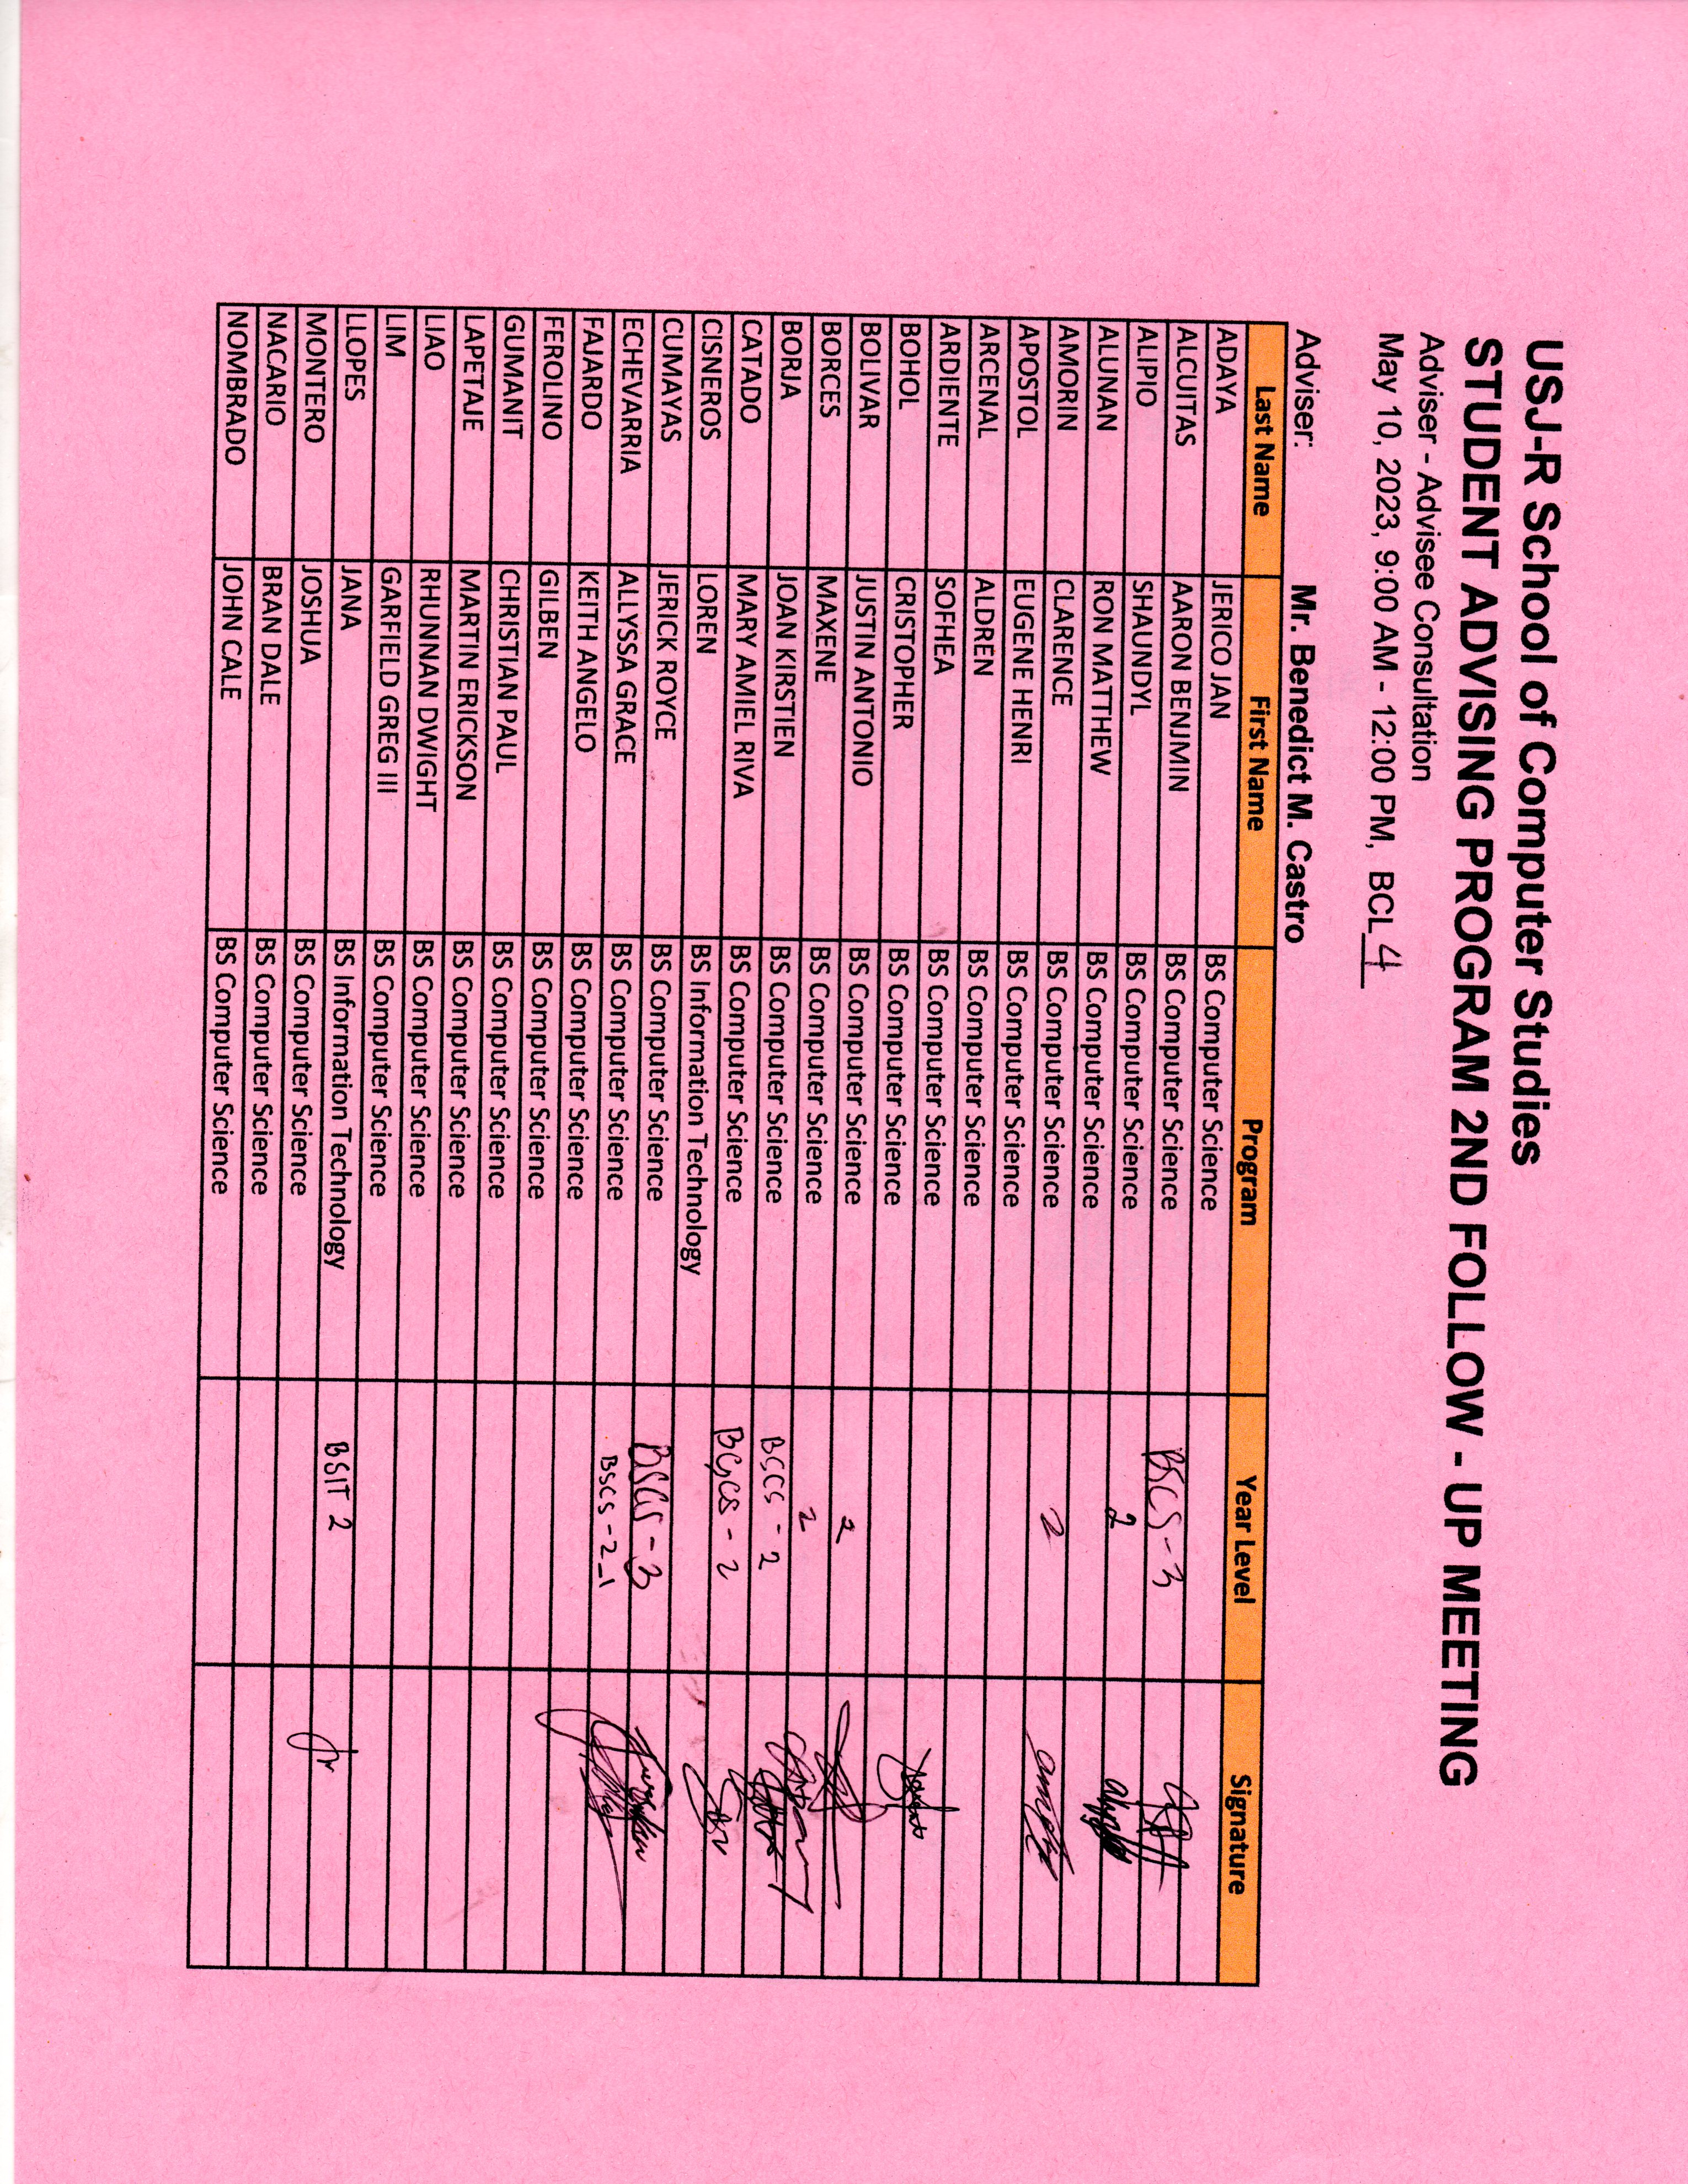 USJ-R School of Computer Studies
STUDENT ADVISING PROGRAM 2ND FOLLOW - UP MEETING
Adviser - Advisee Consultation
May 10, 2023, 9:00 AM - 12:00 PM, BCL 4
Adviser: Mr. Benedict M. Castro
Last Name First Name Program Year Level Signature
ADAYA JERICO JAN BS Computer Science
ALCUITAS AARON BENJMIN BS Computer Science BSCS - 3
ALIPIO SHAUNDYL BS Computer Science 2
ALUNAN RON MATTHEW BS Computer Science
AMORIN CLARENCE BS Computer Science 2
APOSTOL EUGENE HENRI BS Computer Science
ARCENAL ALDREN BS Computer Science
ARDIENTE SOFHEA BS Computer Science
BOHOL CRISTOPHER BS Computer Science
BOLIVAR JUSTIN ANTONIO BS Computer Science 2
BORCES MAXENE BS Computer Science 2
BORJA JOAN KIRSTIEN BS Computer Science BSCS - 2
CATADO MARY AMIEL RIVA BS Computer Science BSCS - 2
CISNEROS LOREN BS Information Technology
CUMAYAS JERICK ROYCE BS Computer Science BSCS - 3
ECHEVARRIA ALLYSSA GRACE BS Computer Science BSCS - 2_1
FAJARDO KEITH ANGELO BS Computer Science
FEROLINO GILBEN BS Computer Science
GUMANIT CHRISTIAN PAUL BS Computer Science
LAPETAJE MARTIN ERICKSON BS Computer Science
LIAO RHUNNAN DWIGHT BS Computer Science
LIM GARFIELD GREG III BS Computer Science
LLOPES JANA BS Information Technology BSIT 2
MONTERO JOSHUA BS Computer Science
NACARIO BRAN DALE BS Computer Science
NOMBRADO JOHN CALE BS Computer Science